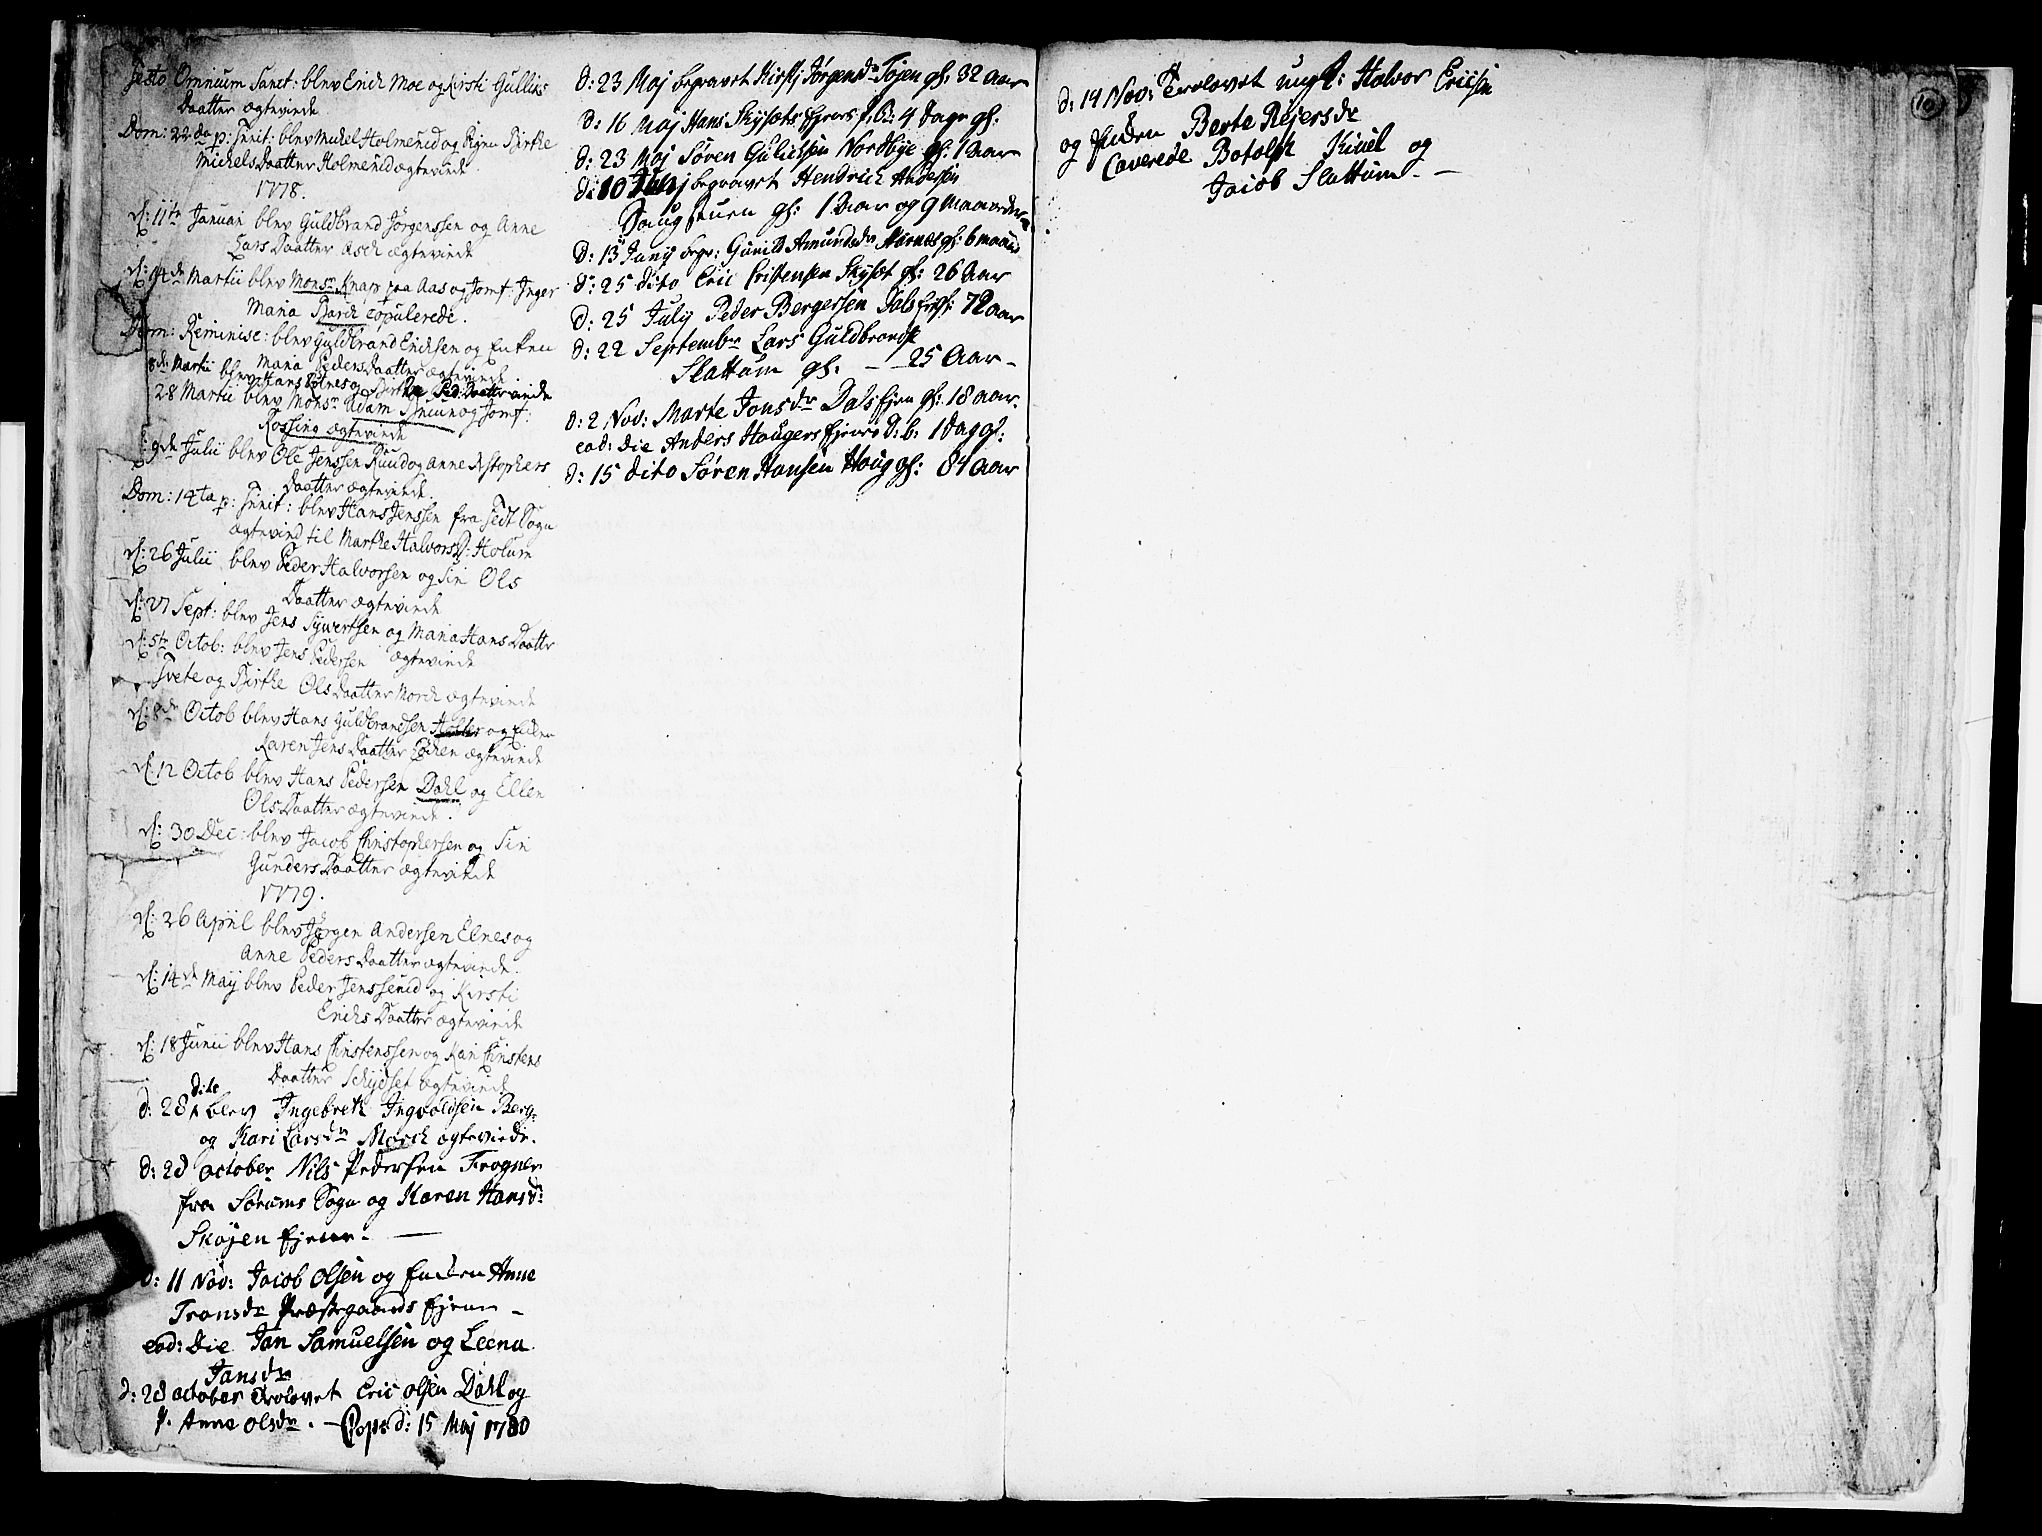 Festo Omnium Sanct: blev Erich Moe og Kirsti Gulliks
Daatter ægteviede
Dom: 22da p: Trinit: blev Michel Holmenid og Birthe
Michels Daatter Holmenid ægteviede
1778.
d: 11te Januari blev Guldbrand Jørgenssen og Anne
Lars Daatter Asch ægteviede
d: 14de Martii blev Monsr Knap paa Aas og Jomf: Inger
Maria Barch copulerede.
Dom: Reminisc: blev Guldbrand Erichsen og Enken
Maria Peders Daatter ægteviede
8de Martii blev Hans Elnes og Birthe Ped: Daatter viede
28 Martii blev Monsr Adam og Jomf:
Rossing ægteviede
d: 9de Julii blev Ole Jenssen Ruud og Anne Kristophers
Daatter ægteviede.
Dom: 14ta p: Trinit: blev Hans Jenssen fra Fedt Sogn
ægteviod til Marthe Halvors D: Holum
d: 26 Julii blev Peder Halvorsen og Siri Ols
Daatter ægteviede
d: 27 Sept: blev Jens Sywertsen og Maria Hans Daatter
ægteviede
d: 5te Octob: blev Jens Pedersen
Tvete og Birthe Ols Daatter Morch ægteviede
d: 8de Octob blev Hans Guldbrandsen Holter og Enken
Karen Jens Daatter ægteviede
d: 12 Octob blev Hans Pedersen Dahl og Ellen
Ols Daatter ægteviede.
d: 30 Dec: blev Jacob Christophersen og Siri
Gunders Daatter ægteviede
1779.
d: 26 April blev Jørgen Andersen Elnes og
Anne Peders Daatter ægteviede.
d: 14de Maij blev Peder Jenssenid og Kirsti
Erichs Daatter ægteviede
d: 18 Junii blev Hans Christenssen og Kari Christens
Daatter Schydset ægteviede
d: 28 dito blev Ingebreth Ingvoldsen Berg
og Kari Larsdr Morch ægteviede.
d: 28 october Nils Pedersen Frogner
fra Sørums Sogn og Karen Hansdr
Skøjen Ejere.
d: 11 Nov: Jacob Olsen og Enken Anne
Transdr Præstegaards Ejere
eod: Die Jan Samuelsen og Leena
Jansdr
d: 28 october Trolovet Eric olsen Dahl og
p. Anne olsdr. — Cop: d: 15 Maj 1780
d: 23 Maj begravet Kirstj Jørgensdr Tøjen gl: 32 Aar
d: 16 Maj Hans Skysets Ejeres f. B: 4 Dage gl.
d: 23 Maj Søren Gulichsen Nordbye gl: 1 Aar
d: 10 Junj begravet Hendrich Andersen
Saugstuen gl: 1 Aar og 9 Maaneder
d: 13 Junij begr: Gunild Amundsdr Narnes gl: 6 maan
d: 25 dito Eric Cristensen Skyset gl: 26 Aar
d: 25 Julij Peder Bergersen Dals Ejr gl: 72 Aar
d: 22 Septembr Lars Guldbrands
Slattum gl: — 25 Aar —
d: 2 Nov: Marte Jonsdr Dals Ejen gl: 18 aar.
eod: Die Anders Haugers Ejeres D: b: 1 Dag gl:
d: 15 dito Søren Hansen Houg gl: 84 Aar
d: 14 Nov: Trolovet ungk: Halvor Ericsen
og Piden Berte Rejersdr
Caverede Botolph Kivel og
Jacob Slattum. —
10